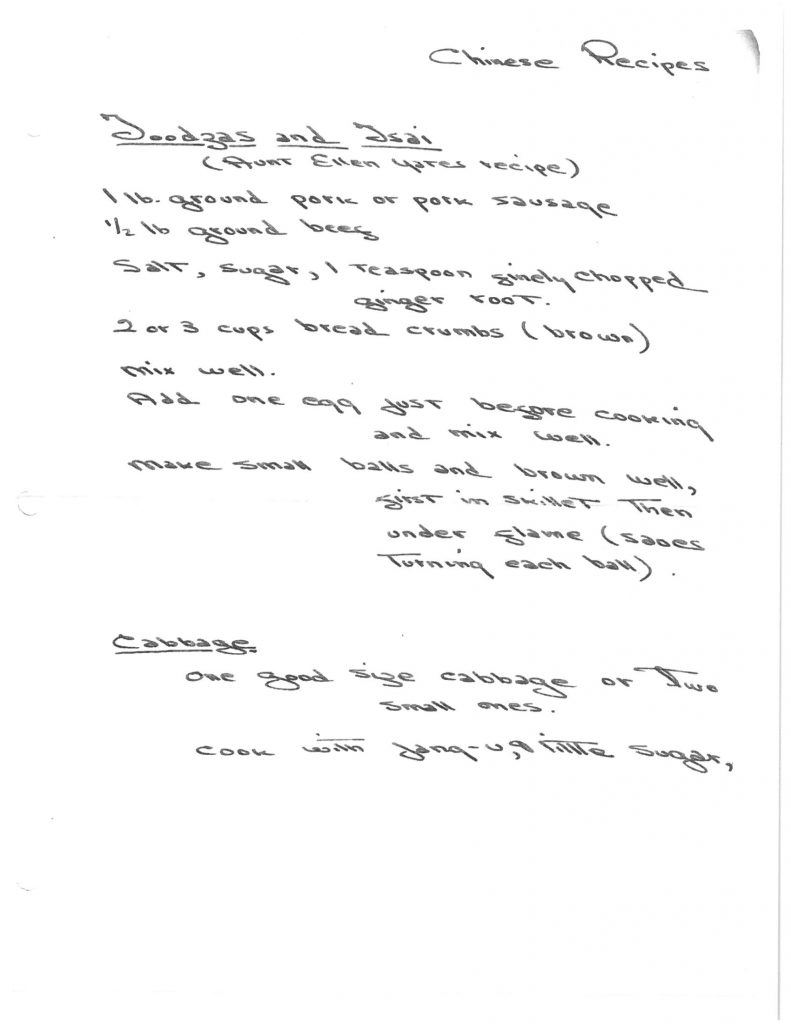 Chinese Recipes
Joodzas and Tsai
(Aunt Ellen Yates recipe)
1 lb. ground pork or pork sausage
1/2 lb ground beef
Salt, sugar, 1 teaspoon finely chopped
ginger root.
2 or 3 cups bread crumbs (brown)
mix well.
Add one egg just before cooking
and mix well.
Make small balls and brown well,
first in skillet then
under flame (saves
turning each ball).
Cabbage.
One good size cabbage or two
small ones.
Cook with jang-u, & little sugar,